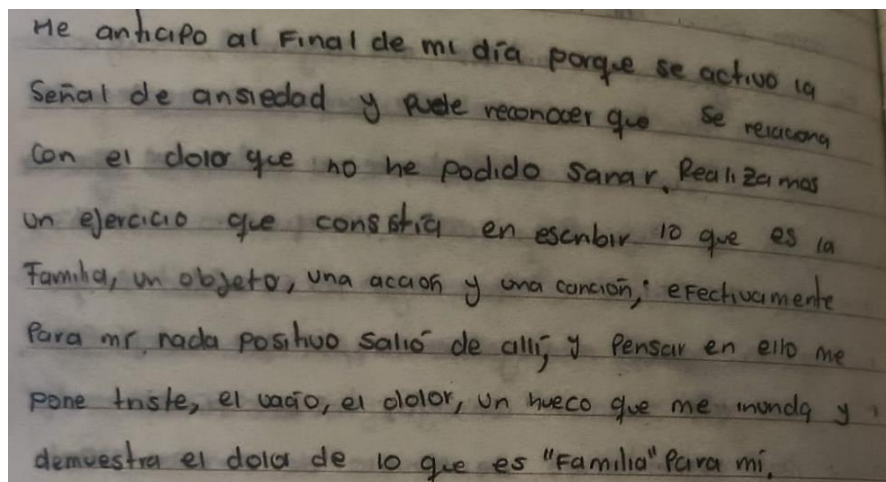 Me anticipo al Final de mi día porque se activo la
Señal de ansiedad y pude reconocer que se relaciona
Con el dolor que no he podido sanar. Realizamos
un ejercicio que consistía en escribir lo que es la
Familia, un objeto, una acción y una canción; efectivamente
Para mí nada positivo salió de allí, y Pensar en ello me
pone triste, el vacío, el dolor, un hueco que me inunda y
demuestra el dolor de lo que es "Familia" Para mí.